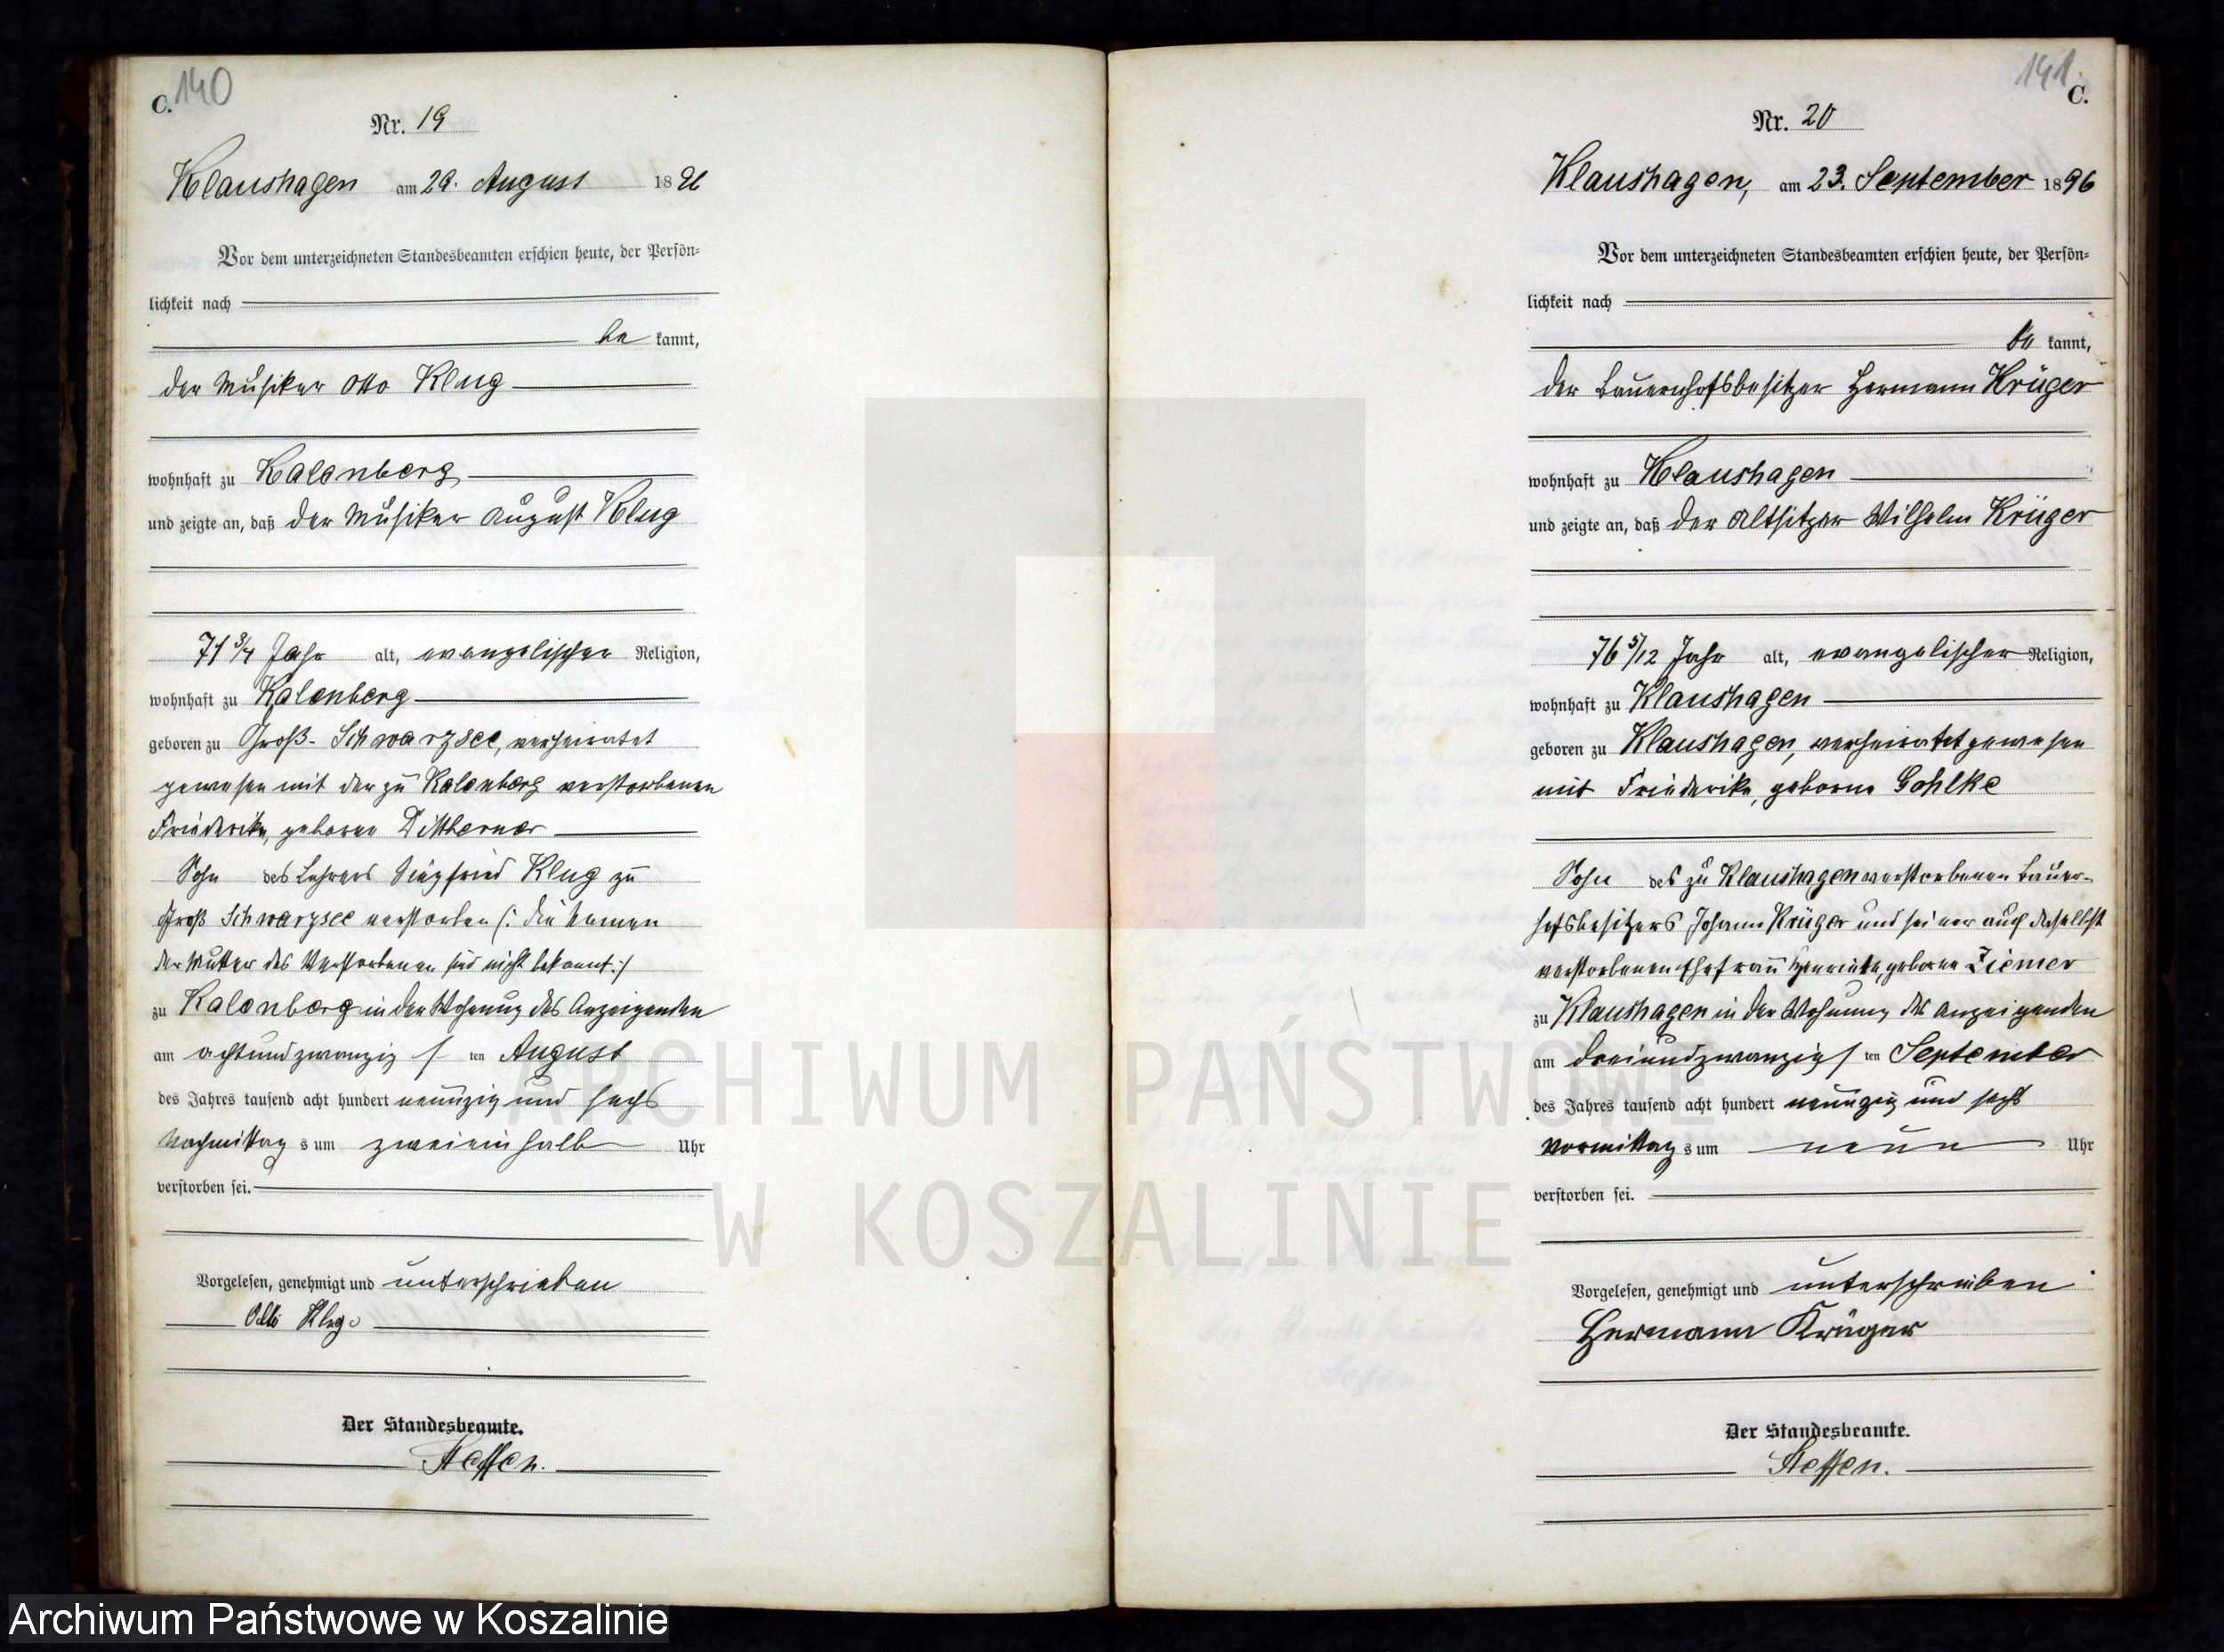 C. 140
Nr. 19
Klaushagen am 29. August 1896
Vor dem unterzeichneten Standesbeamten erschien heute, der Persön-
lichkeit nach
be kannt,
der Musiker Otto Klug
wohnhaft zu Kalenberg
und zeigte an, daß der Musiker August Klug
71 3/4 Jahr alt, evangelischer Religion,
wohnhaft zu Kalenberg
geboren zu Groß-Schwarzsee, verheiratet
gewesen mit der zu Kalenberg verstorbenen
Friederike, geborne Dittberner
Sohn des Lehrers Siegfried Klug zu
Groß Schwarzsee verstorben (: die Namen
der Mutter des Verstorbenen sind nicht bekannt :)
zu Kalenberg in der Wohnung des Anzeigenden
am achtundzwanzig ten August
des Jahres tausend acht hundert neunzig und sechs
Nachmittag s um zweieinhalb Uhr
verstorben sei.
Vorgelesen, genehmigt und unterschrieben
Otto Klug
Der Standesbeamte.
Steffen.
141. C.
Nr. 20
Klaushagen, am 23. September 1896
Vor dem unterzeichneten Standesbeamten erschien heute, der Persön-
lichkeit nach
be kannt,
der Bauernhofsbesitzer Hermann Krüger
wohnhaft zu Klaushagen
und zeigte an, daß der Altsitzer Wilhelm Krüger
76 5/12 Jahr alt, evangelischer Religion,
wohnhaft zu Klaushagen
geboren zu Klaushagen, verheiratet gewesen
mit Friederike, geborne Gohlke
Sohn des zu Klaushagen verstorbenen Bauer-
hofsbesitzers Johann Krüger und seiner auch daselbst
verstorbenen Ehefrau Henriette, geborne Ziemer
zu Klaushagen in der Wohnung des Anzeigenden
am dreiundzwanzig ten September
des Jahres tausend acht hundert neunzig und sechs
Vormittag s um neun Uhr
verstorben sei.
Vorgelesen, genehmigt und unterschrieben
Hermann Krüger
Der Standesbeamte.
Steffen.
ARCHIWUM PAŃSTWOWE
W KOSZALINIE
Archiwum Państwowe w Koszalinie